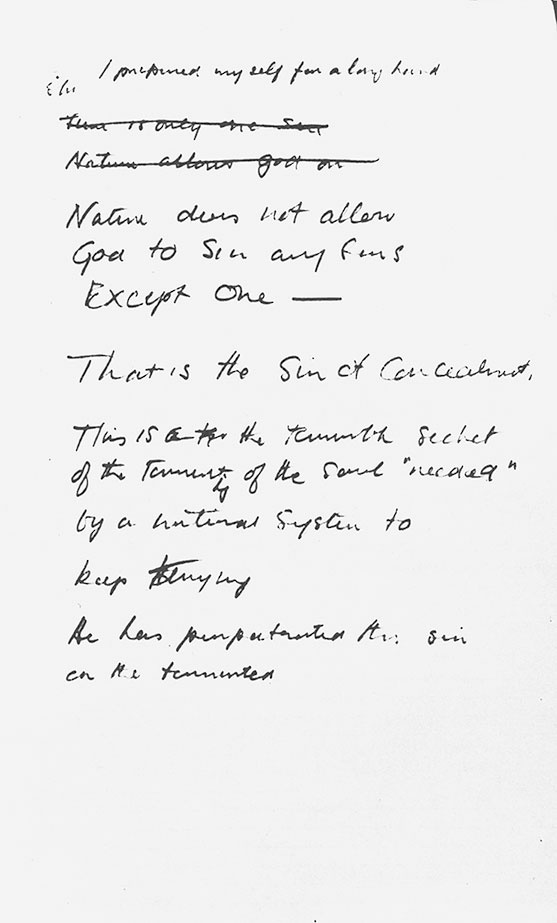 I prepared myself for a long hard
There is only one Sin
Nature allows God on
Nature does not allow
God to Sin any Sins
Except One —
That is the Sin of Concealment,
This is the terrible secret
of the torment by of the Soul "needed"
by a natural System to
keep trying
He has perpetrated this sin
on the tormented